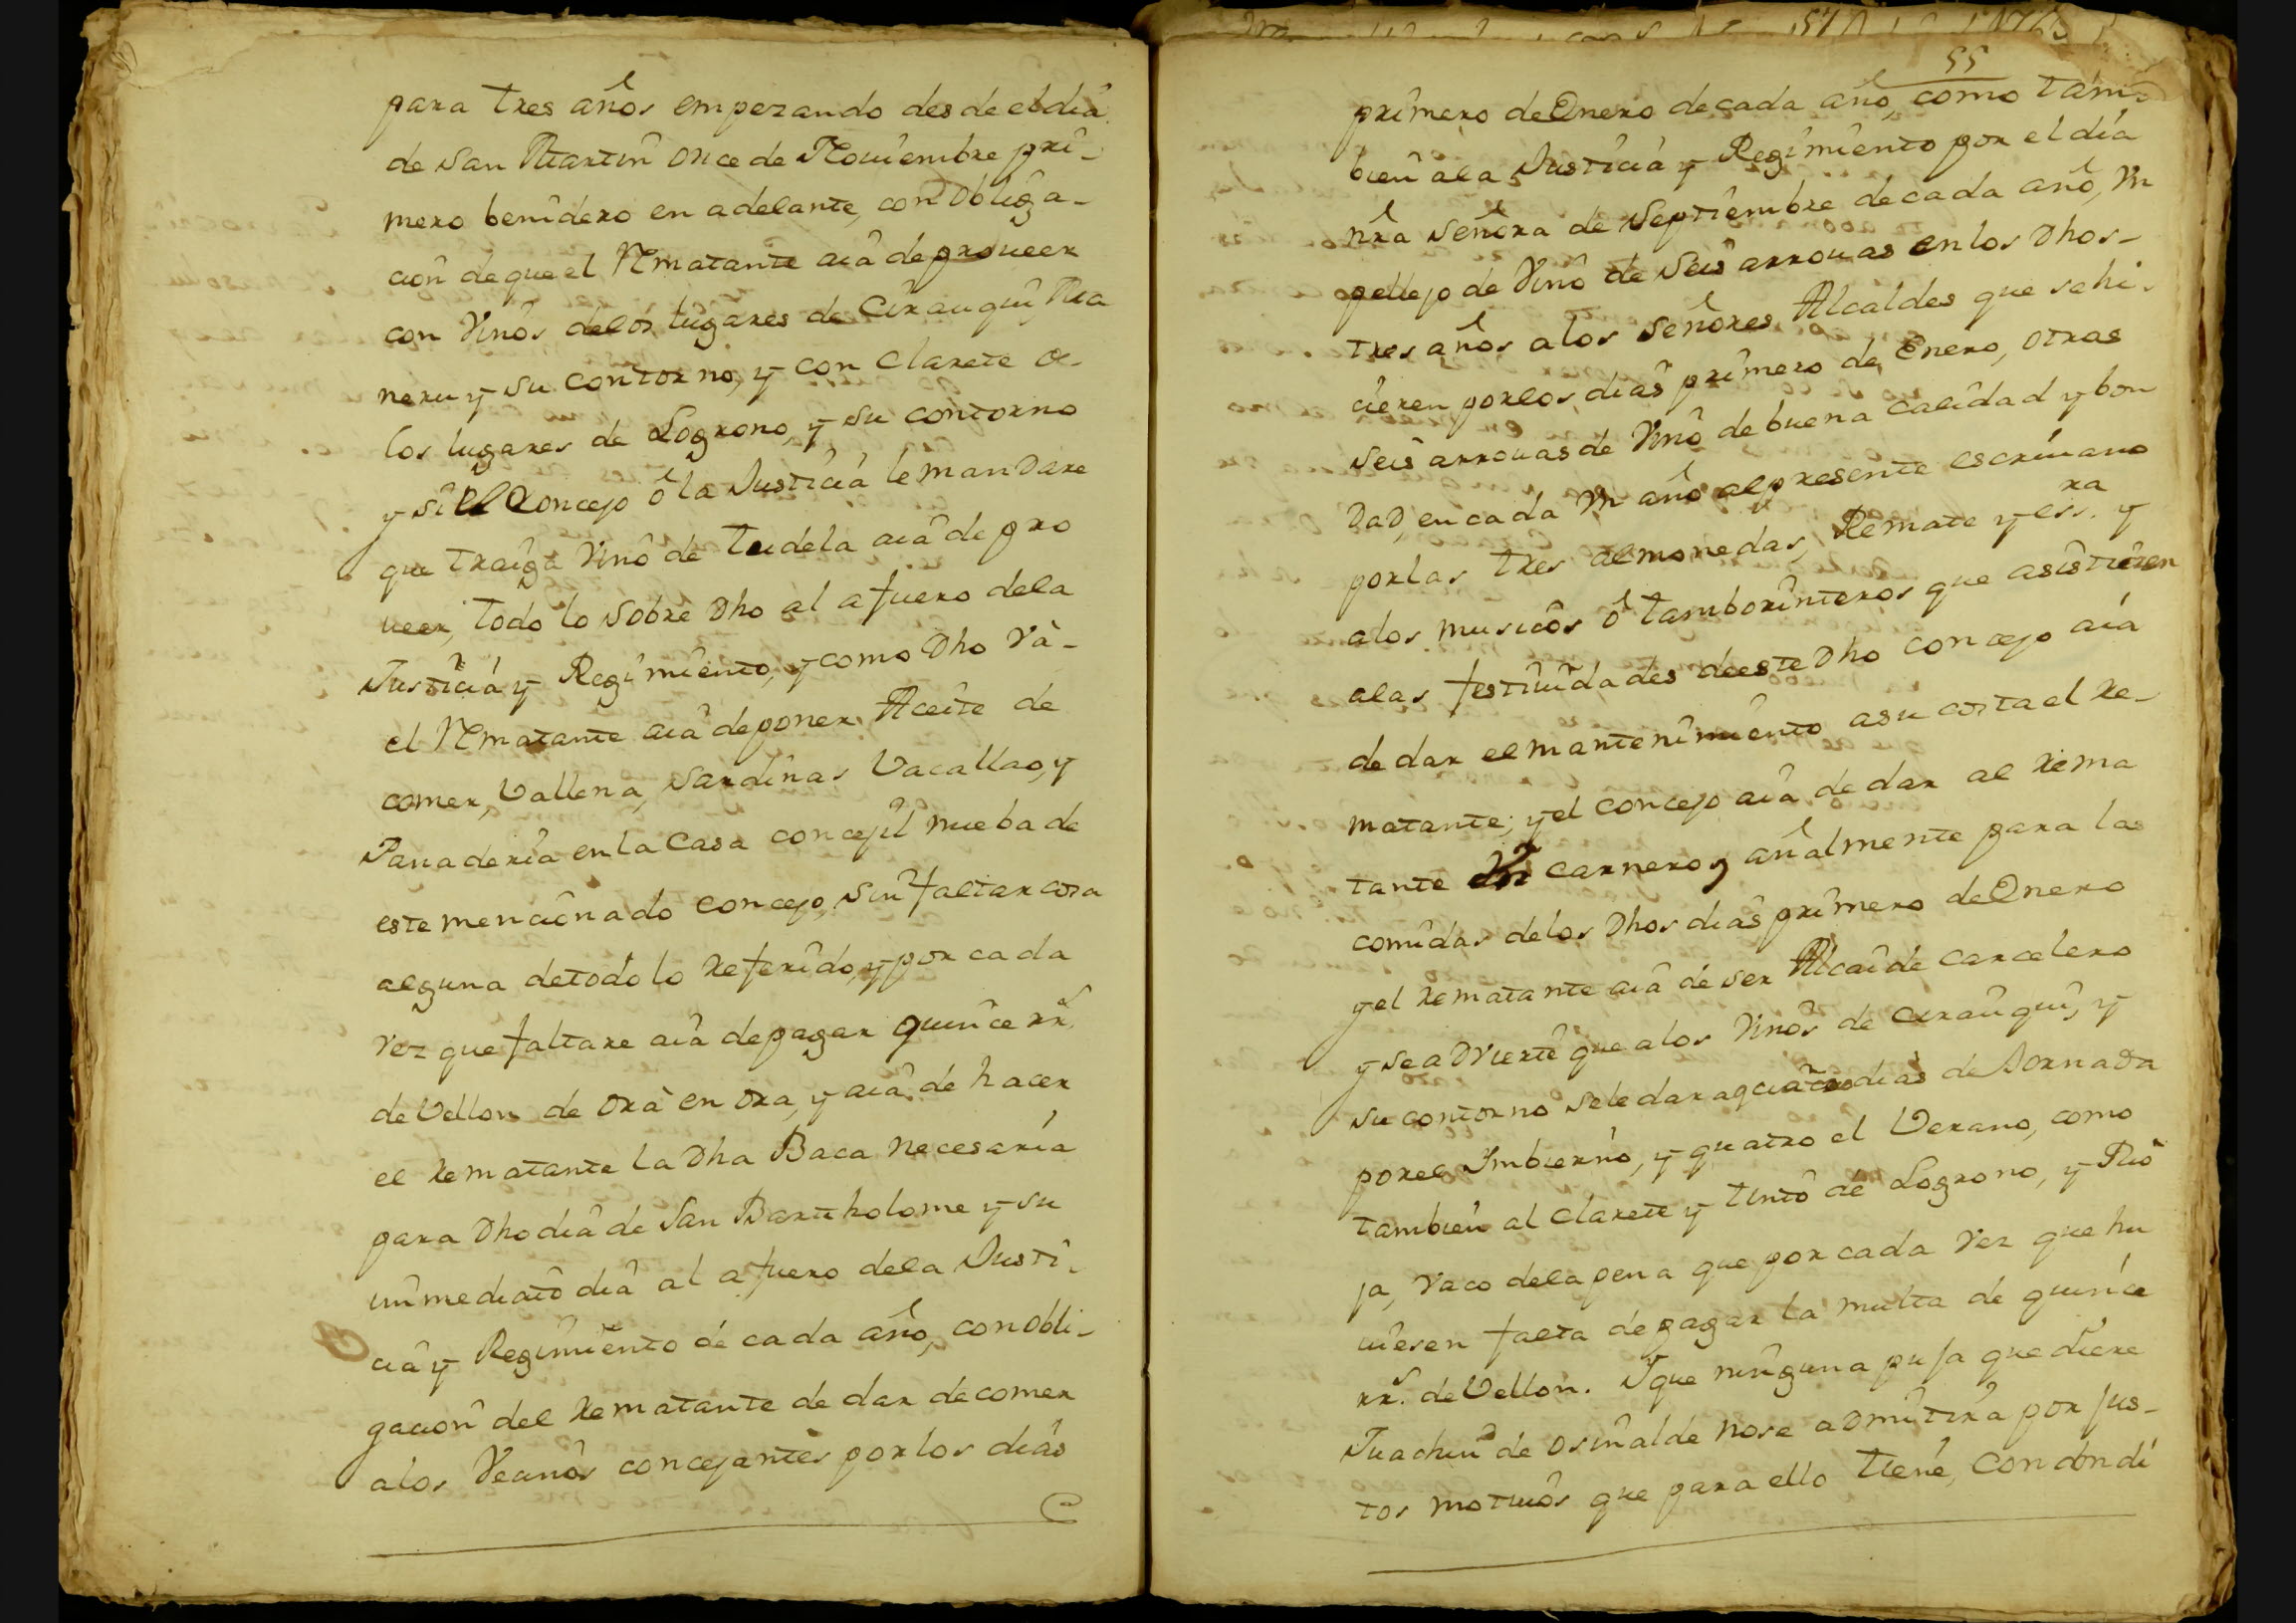 para tres años empezando desde el dia
de San Martin once de Nouiembre pri-
mero benidero en adelante, con obliga-
cion de que el Rmatante aia de proueer
con Vinos delos lugares de Cirauqui, Ma
neru y su contorno, y con Clarete de
los lugares de Logrono, y su contorno
y si el Concejo ô la Justicia le mandare
que traiga Vino de Tudela aia de pro
ueer, todo lo sobre Dho al afuero dela
Justicia y Regimiento, y como Dho Và-
el Rmatante aia de poner Aceite de
comer, Vallena, Sardinas Vacallao, y
Panaderia en la Casa concejil nueba de
este mencionado concejo, sin faltar cosa
alguna detodo lo Referido, y por cada
vez que faltare aia de pagar quince rrs.
de Vellon de ora en ora, y aia de hacer
el Rematante la Dha Baca necesaria
para Dho dia de San Bartholome y su
inmediato dia al afuero dela Justi-
cia y Regimiento de cada año, con obli-
gacion del Rematante de dar de comer
alos Vecinos concejantes por los dias
55
primero de Enero decada año, como tam-
bien ala Justicia y Regimiento por el dia
nra Señora de Septiembre de cada año, Vn
pellejo de Vino de Seis arrouas en los Dhos-
tres años alos Señores Alcaldes que se hi-
cieren por los dias primero de Enero, otras
seis arrouas de Vino de buena calidad y bon
dad, en cada Vn año al presente escriuano
por las tres almonedas, Remate y essra. y
alos musicos ô tamborinteros que asistieren
alas festiuidades deeste Dho concejo aia
de dar el mantenimiento asu costa el Re-
matante; y el concejo aia de dar al Rema
tante Vn carnero, añalmente para las
comidas delos Dhos dias primero de Enero
y el Rematante aia de ser Alcaide carcelero
y se advierte que alos Vinos de Cirauqui, y
su contorno sele dara quatro dias de Jornada
por el Imbierno, y quatro el Verano, como
tambien al Clarete y tinto de Logrono, y Rio
ja, Vaco dela pena que por cada vez que hu
uiesen falta de pagar la multa de quince
rrs. de Vellon. Y que ninguna puja que diere
Juachin de Osinalde nose admitira por jus-
tos motiuos que para ello tiene, Condondi